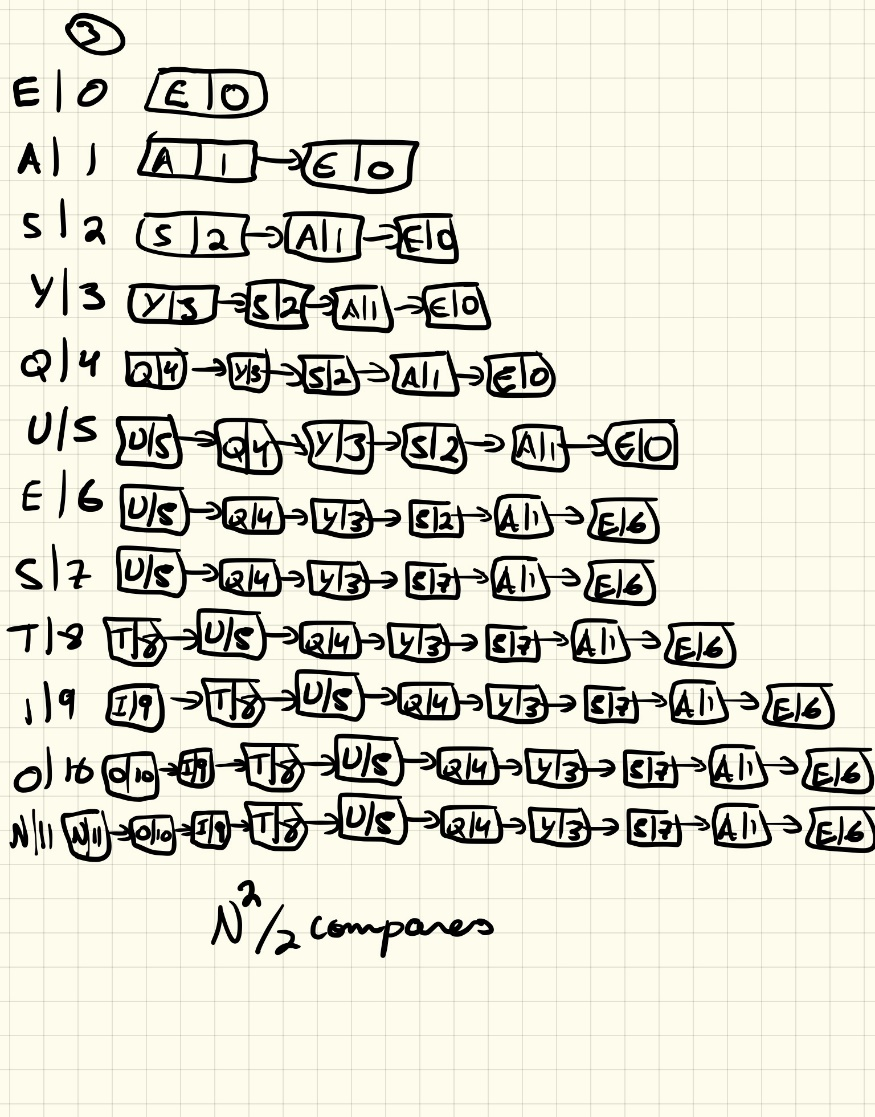 3
E|0 E|0
A|1 A|1 → E|0
S|2 S|2 → A|1 → E|0
Y|3 Y|3 → S|2 → A|1 → E|0
Q|4 Q|4 → Y|3 → S|2 → A|1 → E|0
U/5 U/5 → Q|4 → Y|3 → S|2 → A|1 → E|0
E|6 U/5 → Q|4 → Y|3 → S|2 → A|1 → E|6
S|7 U/5 → Q|4 → Y|3 → S|7 → A|1 → E|6
T|8 T|8 → U/5 → Q|4 → Y|3 → S|7 → A|1 → E|6
I|9 I|9 → T|8 → U/5 → Q|4 → Y|3 → S|7 → A|1 → E|6
O|10 O|10 → I|9 → T|8 → U/5 → Q|4 → Y|3 → S|7 → A|1 → E|6
N|11 N|11 → O|10 → I|9 → T|8 → U/5 → Q|4 → Y|3 → S|7 → A|1 → E|6
N²/2 compares